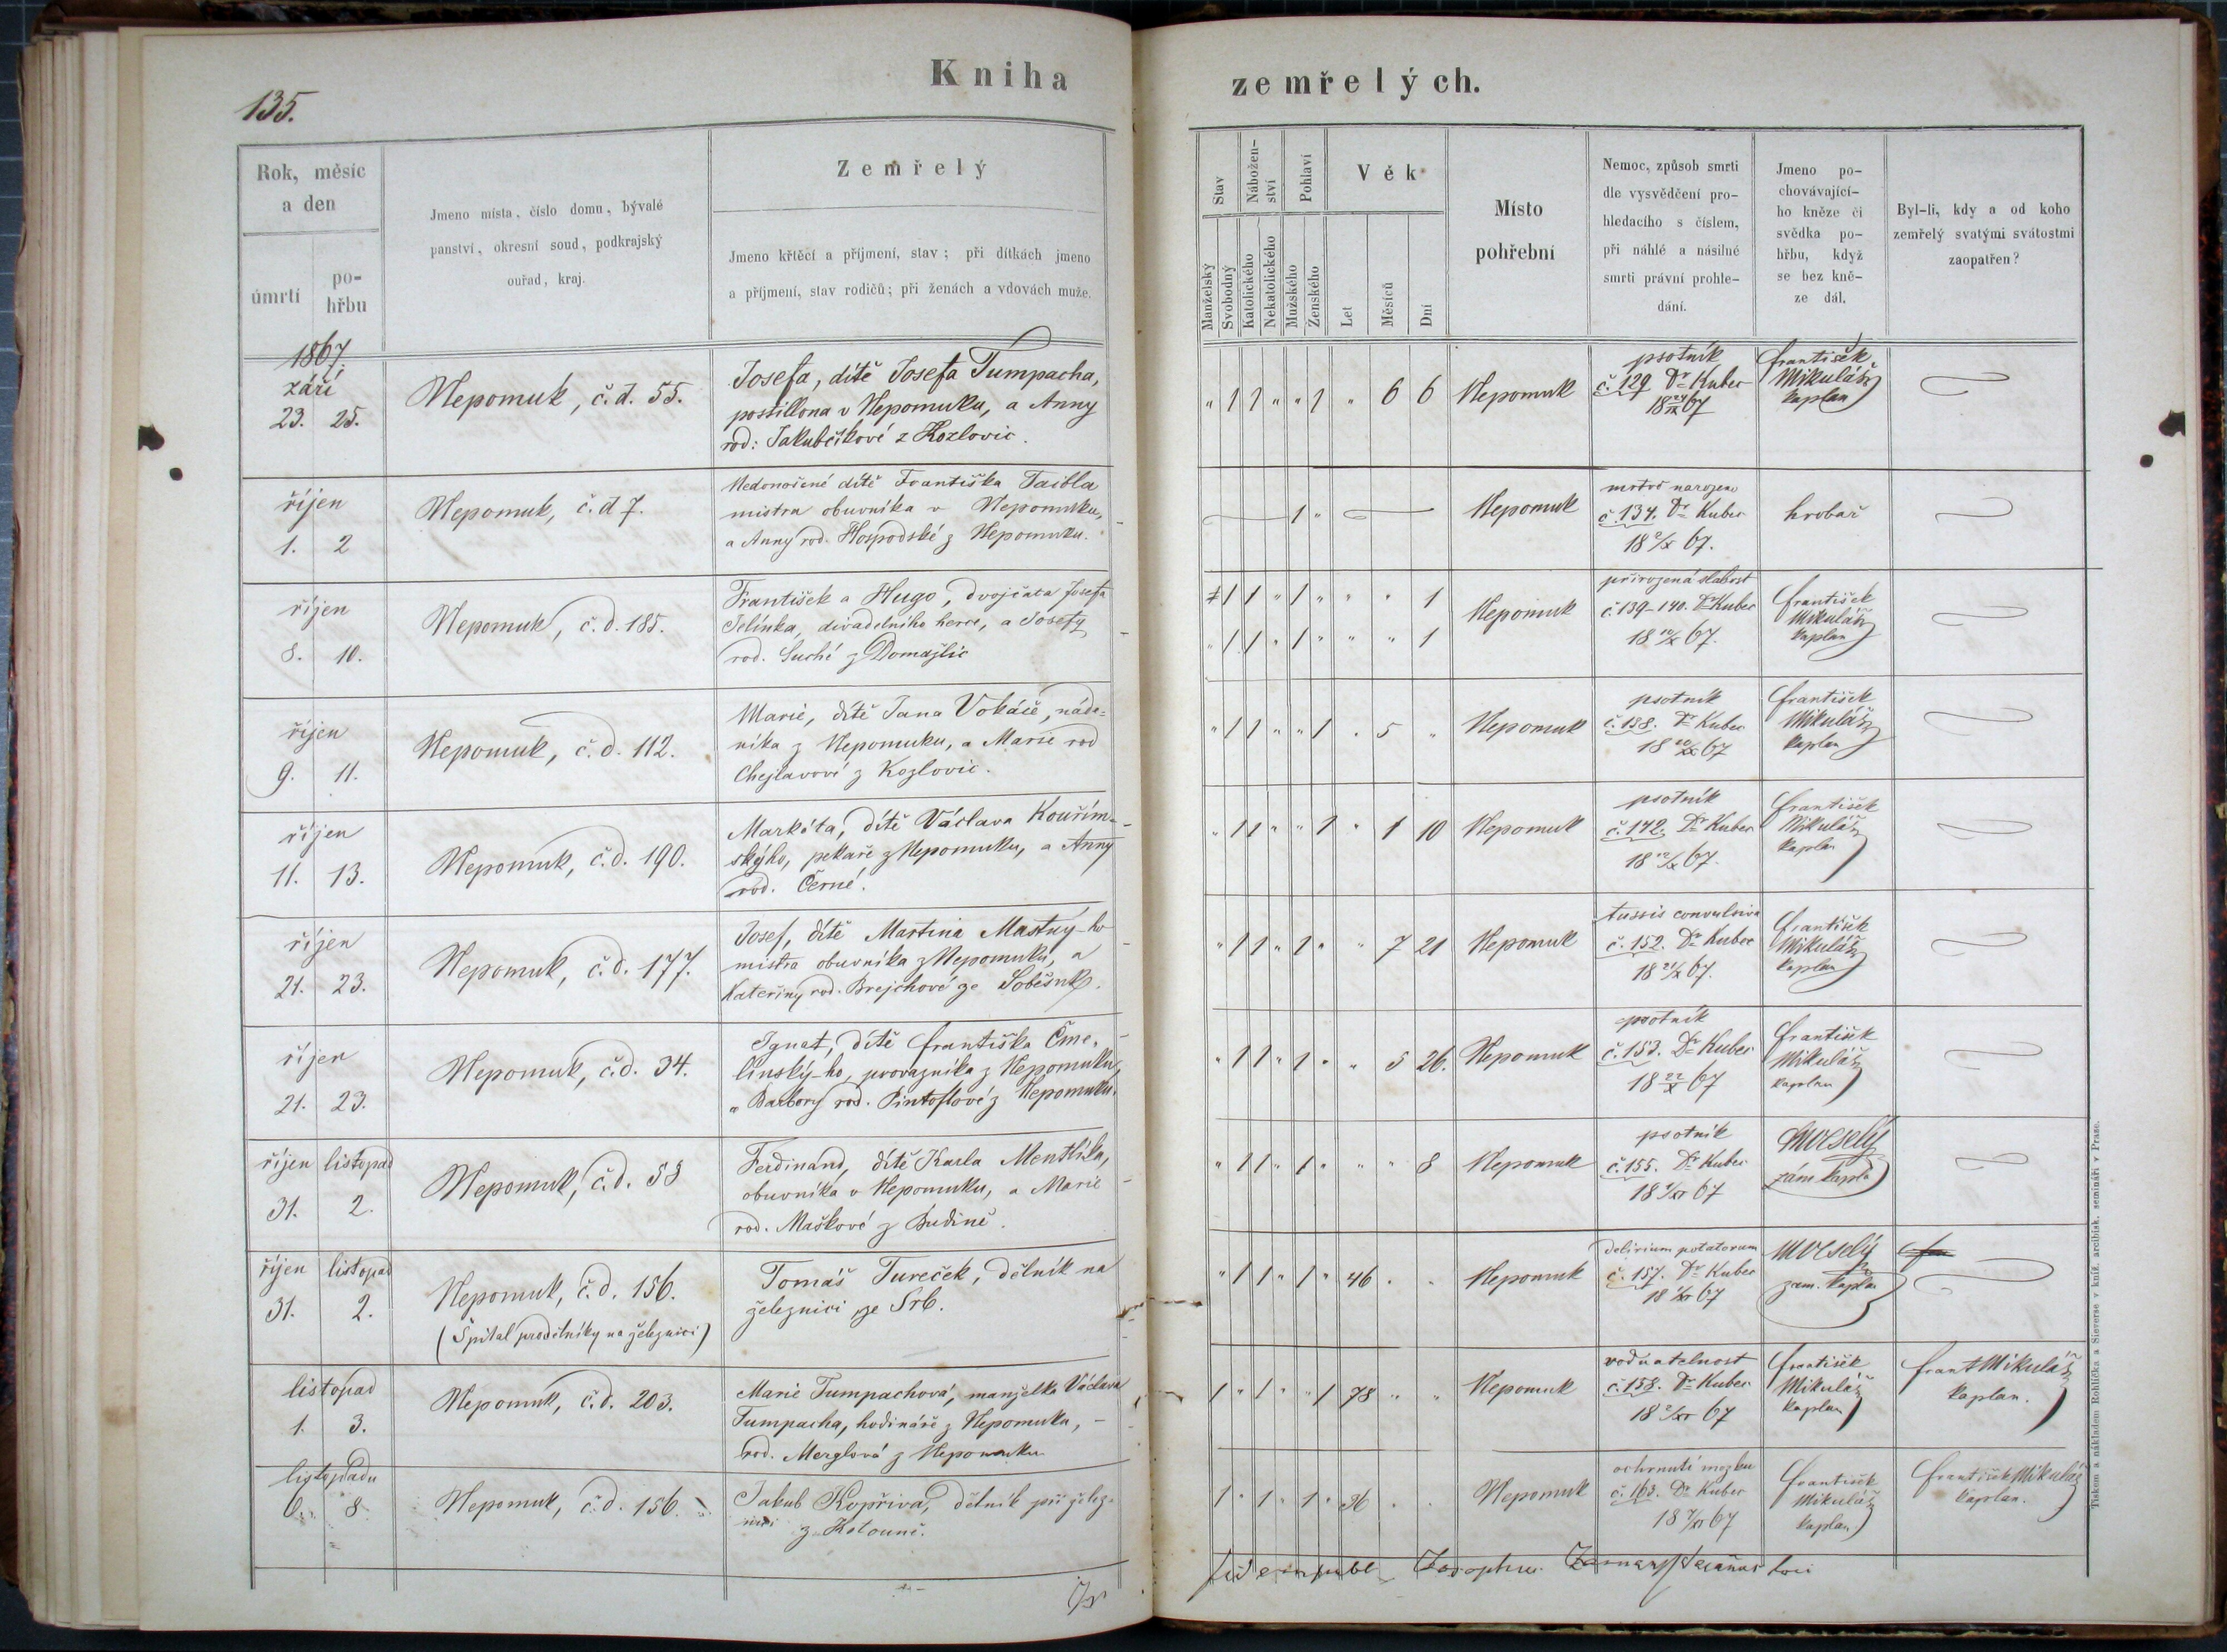 135.
Kniha zemřelých.
Rok, měsíc
a den
úmrtí
po-
hřbu
Jmeno místa, číslo domu, bývalé
panství, okresní soud, podkrajský
ouřad, kraj.
Zemřelý
Jmeno křtěcí a příjmení, stav; při dítkách jmeno
a příjmení, stav rodičů; při ženách a vdovách muže.
Stav
Manželský
Svobodný
Nábožen-
ství
Katolického
Nekatolického
Pohlaví
Mužského
Ženského
Věk
Let
Měsíců
Dní
Místo
pohřební
Nemoc, způsob smrti
dle vysvědčení pro-
hledacího s číslem,
při náhlé a násilné
smrti právní prohle-
dání.
Jmeno po-
chovávající-
ho kněze či
svědka po-
hřbu, když
se bez kně-
ze dál.
Byl-li, kdy a od koho
zemřelý svatými svátostmi
zaopatřen?
1867.
září
23. 25.
Nepomuk, č. d. 55.
Josefa, dítě Josefa Tumpacha,
postillona v Nepomuku, a Anny
rod: Jakubčíkové z Kozlovic.
" 1 1 " " 1 " 6 6
Nepomuk
psotník
č. 129 Dr Kubec
18 24/IX 67
František
Mikuláš
kaplan
říjen
1. 2
Nepomuk, č. d 7.
Nedonošené dítě Františka Taibla
mistra obuvníka v Nepomuku,
a Anny rod. Hospodské z Nepomuku.
1 "
Nepomuk
mrtvě narozeno
č. 134. Dr Kubec
18 2/X 67.
hrobař
říjen
8. 10.
Nepomuk, č. d. 185.
František a Hugo, dvojčata Josefa
Jelínka, divadelního herce, a Josefy
rod. Suché z Domažlic
1 1 " 1 " " " 1
" 1 1 " 1 " " " 1
Nepomuk
přirozená slabost
č. 139-140. Dr Kubec
18 10/X 67.
František
Mikuláš
kaplan
říjen
9. 11.
Nepomuk, č. d. 112.
Marie, dítě Jana Vokáče, náde-
níka z Nepomuku, a Marie rod
Chejlavové z Kozlovic.
" 1 1 " " 1 . 5 "
Nepomuk
psotník
Dr Kubec
František
Mikuláš
kaplan
říjen
11. 13.
Nepomuk, č. d. 190.
Markéta, dítě Václava Kouřim-
skýho, pekaře z Nepomuku, a Anny
rod. Černé.
" 1 1 " " 1 " 1 10
Nepomuk
psotník
č. 142. Dr Kubec
18 12/X 67.
František
Mikuláš
kaplan
říjen
21. 23.
Nepomuk, č. d. 177.
Josef, dítě Martina Mastný-ho
mistra obuvníka z Nepomuku, a
Kateřiny rod. Brejchové ze Soběsuk.
" 1 1 " 1 " " 7 21
Nepomuk
tussis convulsiva
č. 152. Dr Kubec
18 21/X 67.
František
Mikuláš
kaplan
říjen
21. 23.
Nepomuk, č. d. 34.
Ignat, dítě Františka Čme-
línský-ho, provazníka z Nepomuku,
a Barbory rod. Pintoflové z Nepomuku.
" 1 1 " 1 " " 5 26.
Nepomuk
psotník
č. 153. Dr Kubec
18 22/X 67
František
Mikuláš
kaplan
říjen listopad
31. 2.
Nepomuk, č. d. 53
Ferdinand, dítě Karla Mentlíka,
obuvníka v Nepomuku, a Marie
rod. Maškové z Budině.
" 1 1 " 1 " " " 8
Nepomuk
psotník
č. 155. Dr Kubec
18 1/XI 67
MVeselý
zám. kaplan
říjen listopad
31. 2.
Nepomuk, č. d. 156.
(Špitál pro dělníky na železnici)
Tomáš Tureček, dělník na
železnici ze Srb.
" 1 1 " 1 " 46 . .
Nepomuk
delirium potatorum
č. 157. Dr Kubec
18 1/XI 67
MVeselý
zam. kaplan
listopad
1. 3.
Nepomuk, č. d. 203.
Marie Tumpachová, manželka Václava
Tumpacha, hodináře z Nepomuku,
rod. Merglová z Nepomuku
1 " 1 " " 1 78 " "
Nepomuk
vodnatelnost
č. 158. Dr Kubec
18 2/XI 67
František
Mikuláš
kaplan
Frant Mikuláš
kaplan.
listopadu
6. 8
Nepomuk, č. d. 156.
Jakub Kopřiva, dělník při želez-
nici z Kotouně.
1 " 1 " 1 " 36 . .
Nepomuk
ochrnutí mozku
č. 163. Dr Kubec
18 7/XI 67
František
Mikuláš
kaplan
František Mikuláš
kaplan.
loci
Tiskem a nákladem Rohlíčka a Sieverse v kníž. arcibisk. semináři v Praze.